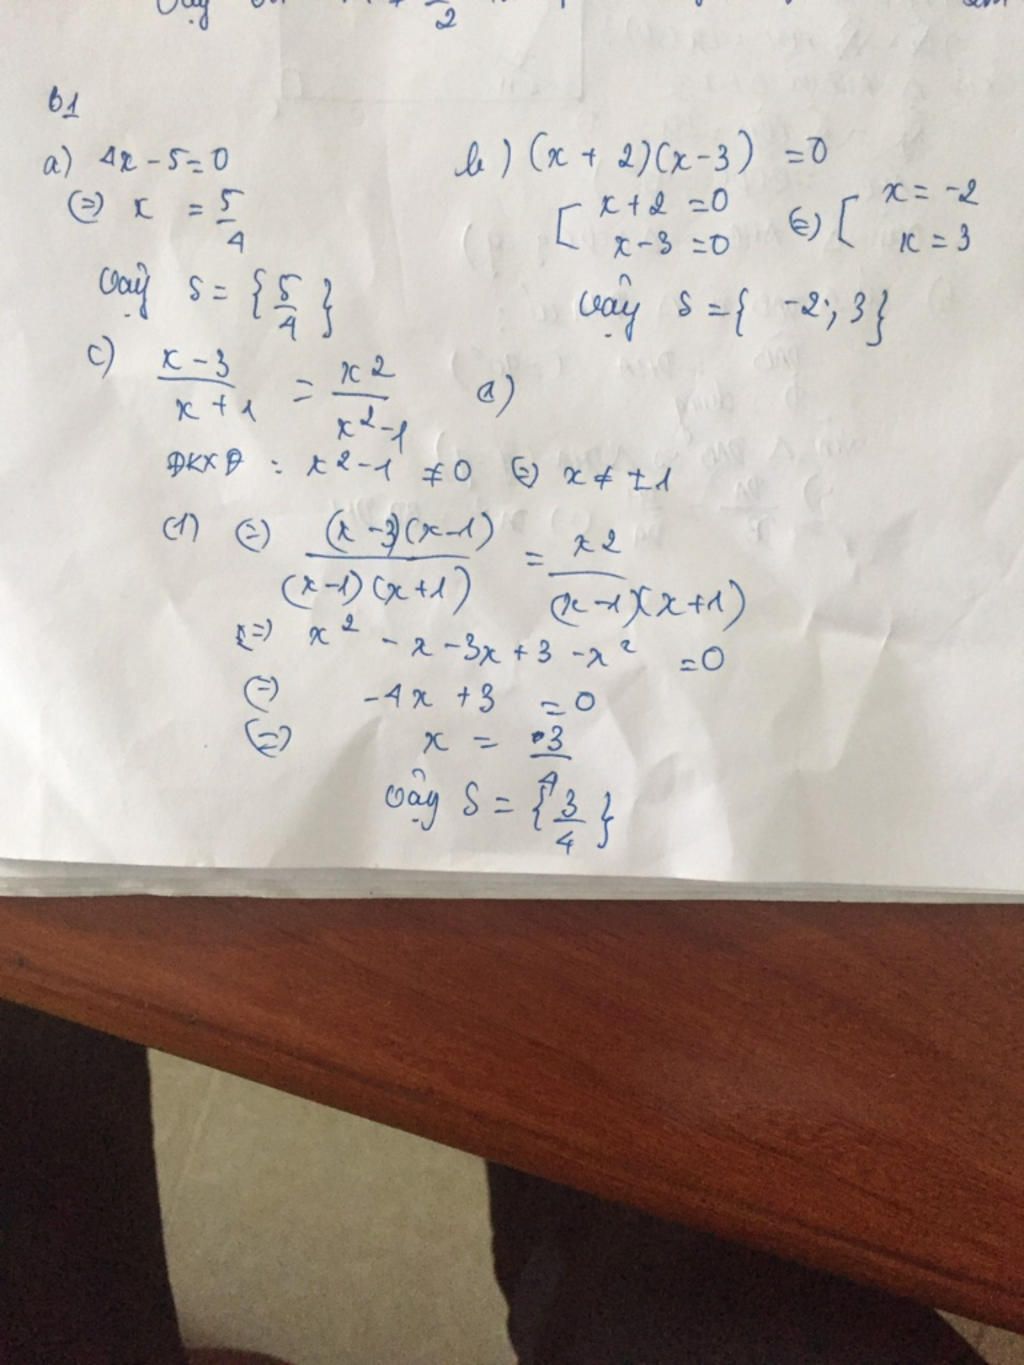 2
b1
a) 4x - 5 = 0
(=) x = 5/4
Vậy S = { 5/4 }
b) (x + 2)(x - 3) = 0
[ x + 2 = 0
x - 3 = 0 (=) [ x = -2
x = 3
Vậy S = { -2 ; 3 }
c) x - 3 / x + 1 = x2 / x² - 1 (1)
ĐKXĐ : x² - 1 ≠ 0 (=) x ≠ ± 1
(1) (=) (x - 3)(x - 1) / (x - 1)(x + 1) = x2 / (x - 1)(x + 1)
(=) x² - x - 3x + 3 - x² = 0
(=) -4x + 3 = 0
(=) x = 3/4
Vậy S = { 3/4 }